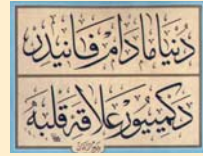 دنيا مادام فانيدر
دكمييور علاقۀ قلبه